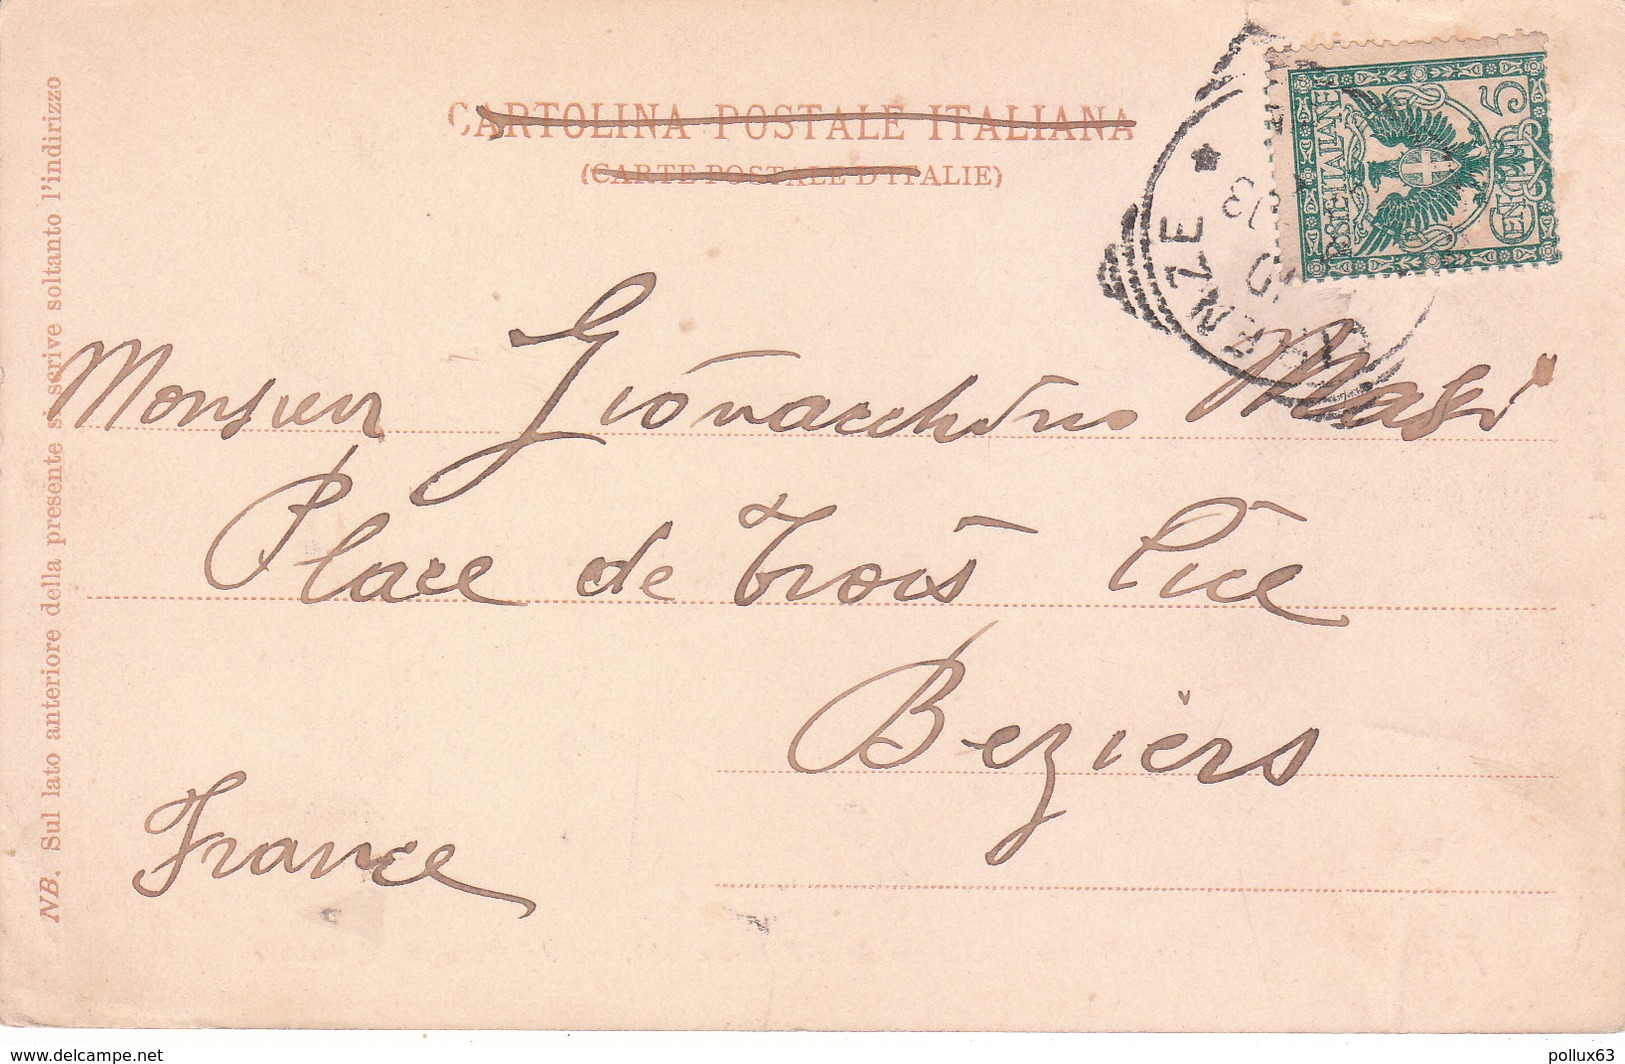 CARTOLINA POSTALE ITALIANA
(CARTE POSTALE D'ITALIE)
POSTE ITALIANE
CENT. 5
Monsieur Giovacchino Masi
Place de Trois Six
Beziers
France
NB. Sul lato anteriore della presente si scrive soltanto l'indirizzo
www.delcampe.net
pollux63